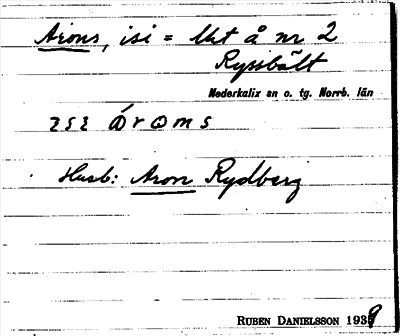 Arons, isi = Ukt å nr 2
Ryssbält
Nederkalix sn o. tg. Norrb. län
Husb: Aron Rydberg
RUBEN DANIELSSON 1939